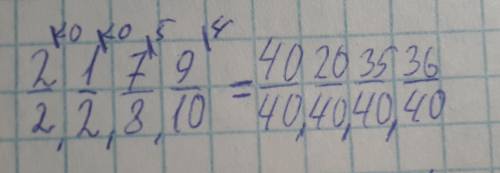 2/2, 1/2, 7/8, 9/10 = 40/40, 20/40, 35/40, 36/40